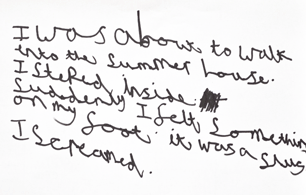 I was about to walk
into the summer house.
I steped inside.
Suddenly I felt somethin
on my foot. it was a slug
I screamed.